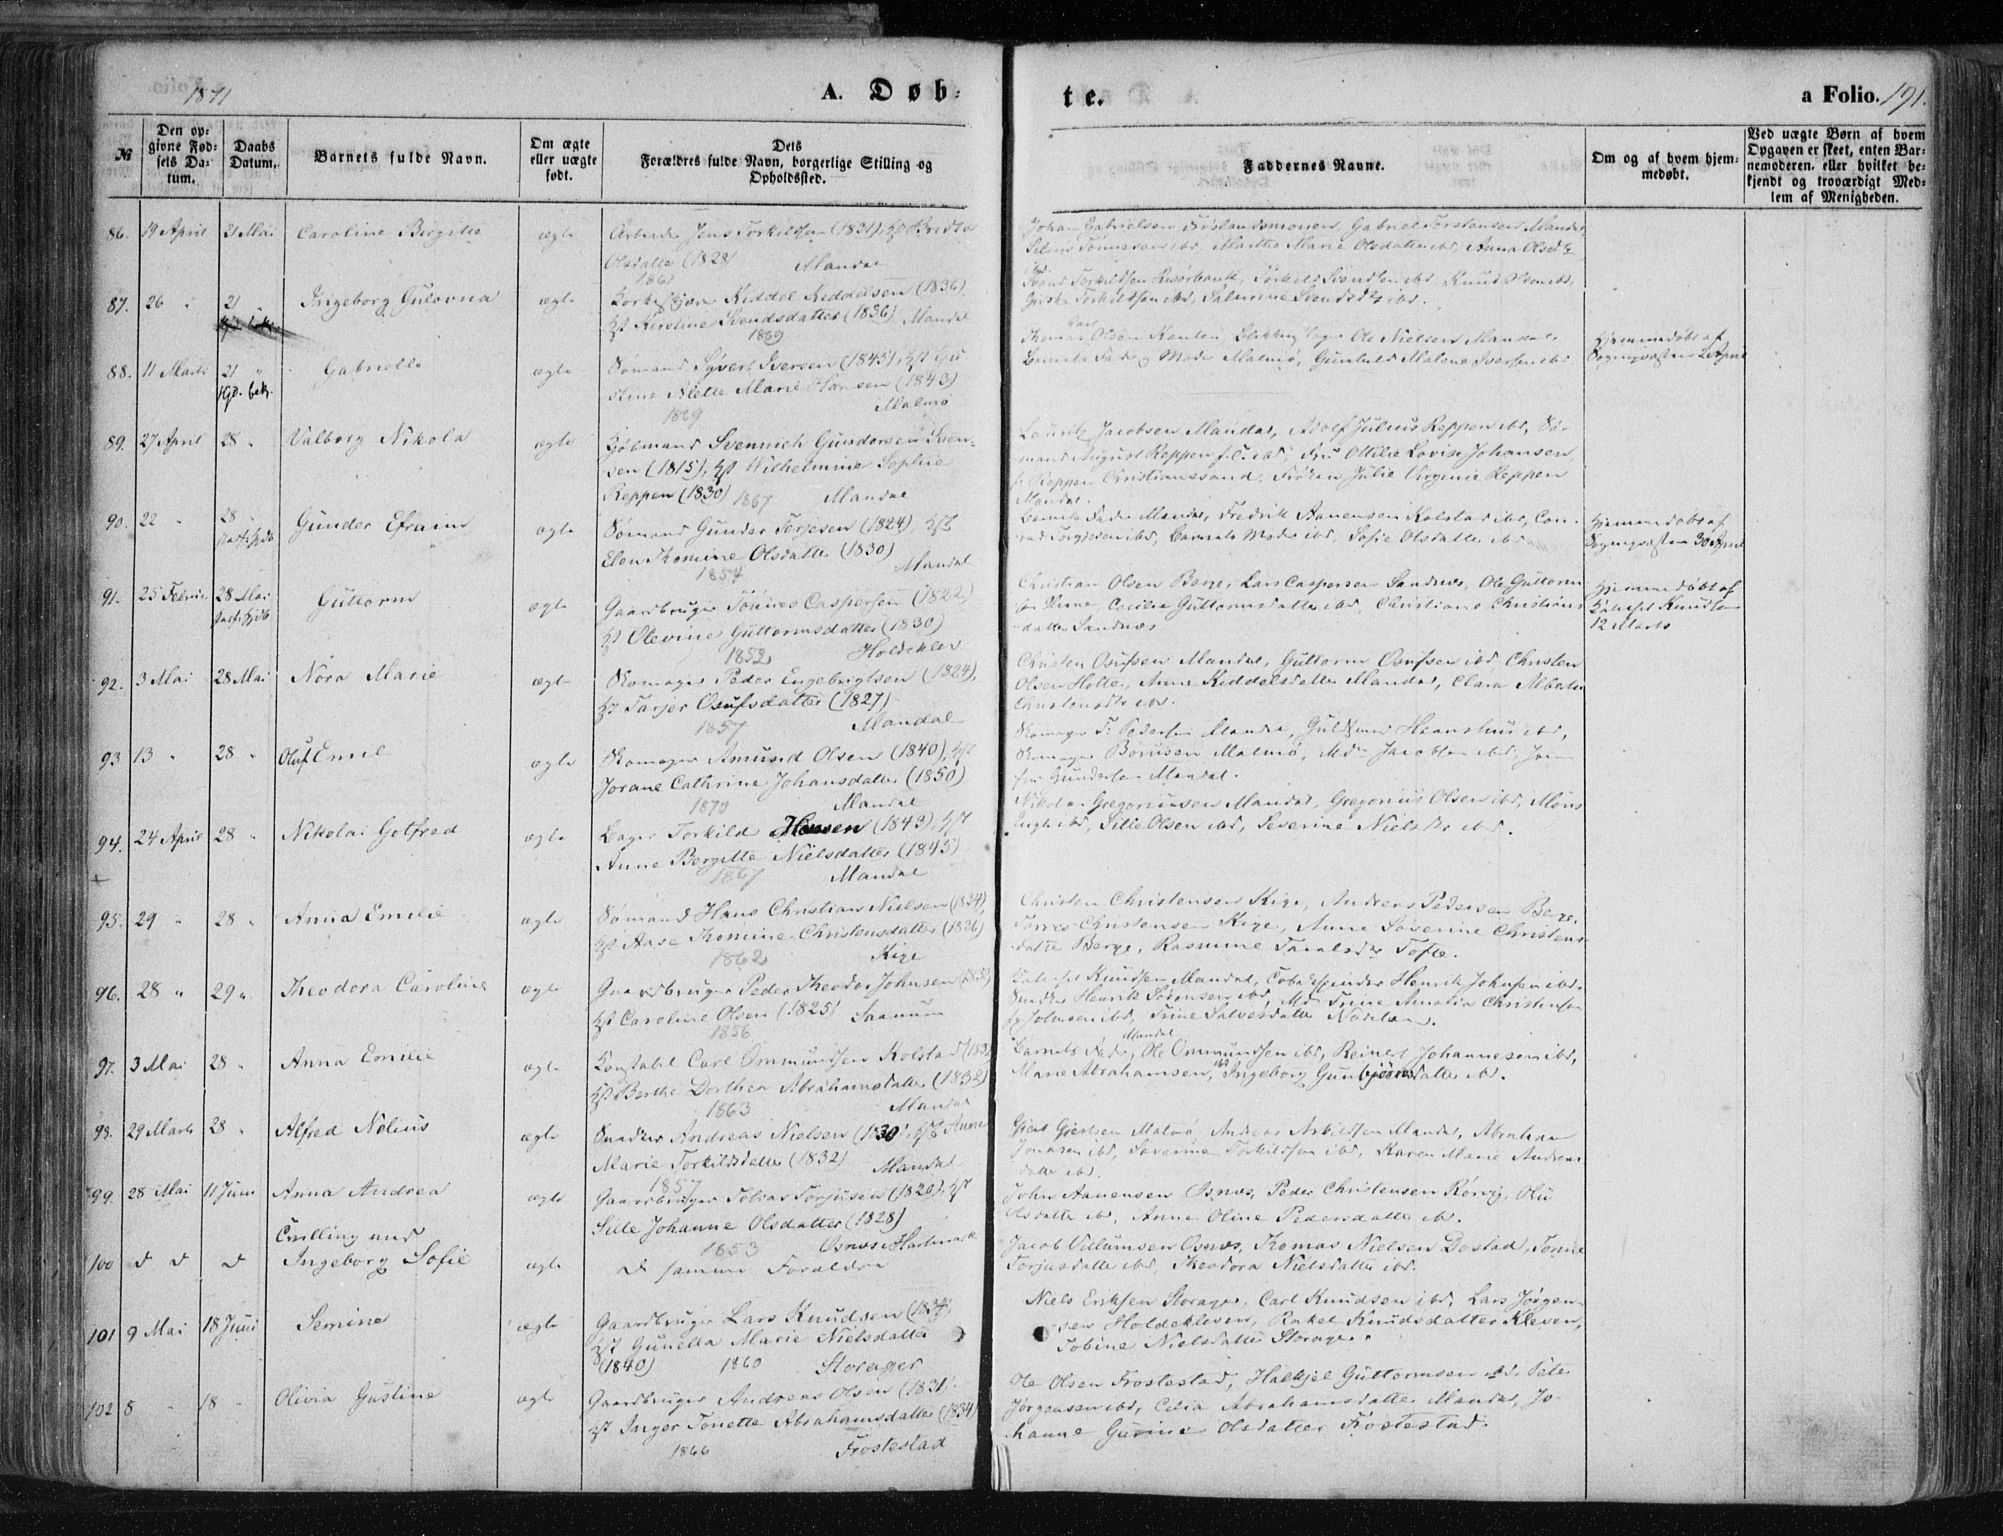 1871
A. Døb-
te.
a Folio. 191.
№
Den op-
givne Fød-
sels Da-
tum.
Daabs
Datum.
Barnets fulde Navn.
Om ægte
eller uægte
født.
Dets
Forældres fulde Navn, borgerlige Stilling og
Opholdssted.
Faddernes Navne.
Om og af hvem hjem-
medøbt.
Ved uægte Børn af hvem
Opgaven er skeet, enten Bar-
nemoderen, eller hvilket be-
kjendt og troværdigt Med-
lem af Menigheden.
86. 19 April 21 Mai Caroline Birgitte ægte Arbeider Jens Torkildsen (1831)
Olsdatter (1828) Mandal
1861
Johan Gabrielsen Frøslandsmonen, Gabriel Torstensen Mandal
Tønnesen ibd, Marthe Marie Olsdatter ibd, Anna Olsdtr
87. 26 " 21 " Ingeborg Gulovna ægte Kiddel Keddelsen (1836)
Hst Karoline Svendsdatter (1836) Mandal
1869
88. 11 Marts 21 " Gabrielle ægte Sømand Syvert Iversen (1845), Hst
Kgd. bek.
stine Nielle Marie Hansen (1843)
1869 Malmø
Thomas Olsen, Ole Nielsen Mandal
Barnets Fader og Moder Malmø, Gunhild Malene Iversen ibd.
Hjemmedøbt af
Sognepræsten 2 April
89. 27 April 28 " Valborg Nikola ægte Kjøbmand Svennich Gundersen Sven-
sen (1815), Hst Wilhelmine Sophie
Reppen (1830) 1867 Mandal
Lauritz Jacobsen Mandal, Adolf Julius Reppen ibd, Sø-
mand August Reppen f. C. ibd, Fru Ottilie Lovise Johansen
f. Reppen Christianssand, Frøken Julie Virginie Reppen
Mandal.
90. 22 " 28 " Gunder Efraim ægte Sømand Gunder Terjesen (1824), Hst
Elen Thomine Olsdatter (1830)
1854 Mandal
Barnets Fader Mandal, Fredrik Aanensen Kolstad ibd, Con-
rad Torgissen ibd, Barnets Moder ibd, Sofie Olsdatter ibd
Hjemmedøbt af
Sognepræsten 30 April
91. 25 Februar 28 Mai Guttorm ægte Gaardbruger Tønnes Caspersen (1822)
Hst Olevine Guttormsdatter (1830)
1852 Holdekleven
Christian Olsen Berge, Lars Caspersen Sandnes, Ole Guttorm-
sen Hume, Cecilie Guttormsdatter ibd, Christiane Christians-
datter Sandnes
Hjemmedøbt af
Knudsen
12 Marts
92. 3 Mai 28 Mai Nora Marie ægte Skomager Peder Engebrigtsen (1824),
Hst Tarjer Osufsdatter (1827)
1857 Mandal
Christen Osufsen Mandal, Guttorm Osufsen ibd, Christen
Olsen Holte, Anne Kiddelsdatter Mandal, Clara Alberta
Christensdtr ibd.
93 13 " 28 " Oluf Emil ægte Skomager Amund Olsen (1840), Hst
Jorane Cathrine Johansdatter (1850)
1870 Mandal
Skomager T. Pedersen Mandal, Guldsmed Haanshus ibd,
Skomager Berntsen Malmø, Mdm Jacobsen ibd, Jom-
fru Gundersen Mandal.
94. 24 April 28 " Nikolai Gotfred ægte Bager Torkild Hansen (1843), Hst
Anne Bergitte Nielsdatter (1845)
1867 Mandal
Nikolai Gregoriussen Mandal, Gregorius Olsen ibd, Mons
ibd, Sille Olsen ibd, Severine Nielsdtr ibd.
95. 29 " 28 " Anna Emilie ægte Sømand Hans Christian Nielsen (1834),
Hst Aase Thomine Christensdatter (1836)
1862 Kige
Christen Christensen Kige, Andreas Pedersen Berge,
Torres Christensen Kige, Anne Severine Christens-
datter Berge, Rasmine Taralsdtr Tofte.
96. 28 " 29 " Theodora Caroline ægte Gaardbruger Peder Theodor Johnsen (1830)
Hst Caroline Olsen (1825) Saanum
1856
Knudsen Mandal, Tobaksspinder Henrik Johnsen ibd.
Snedker Henrik Sørensen ibd, Md Trine Amalia Christensen
f. Johnsen ibd, Trine Salvesdatter Nødelen.
97. 3 Mai 28 " Anna Emilie ægte Konstabel Carl Ommundsen Kolstad
Hst Berthe Dorthea Abrahamsdatter (1832)
1863 Mandal
Barnets Fader Mandal, Ole Ommundsen ibd, Reinert Johannesen ibd,
Marie Abrahamsen ibd, Ingeborg Gunbjørnsdatter ibd.
98. 29 Marts 28 " Alfred Nelius ægte Snedker Andreas Nielsen (1830), Hst Anne
Marie Torkildsdatter (1832)
1857 Mandal
Giert Giertsen Malmø, Andreas Askildsen Mandal, Abraham
Jonassen ibd, Severine Torkildsen ibd, Karen Marie Andreas-
datter ibd.
99. 28 Mai 11 Juni Anna Andrea ægte Gaardbruger Tobias Torjusen (1820), Hst
Sille Johanne Olsdatter (1828)
1853 Osnæs Hartmark
John Aanensen Osnæs, Peder Christensen Rørvig, Olu
Olsdatter ibd, Anne Oline Pedersdatter ibd.
Tvilling med
100 d d d Ingeborg Sofie ægte d samme Forældre
Jacob Villumsen Osnæs, Thomas Nielsen Dostad, Tonne
Torjusdatter ibd, Theodora Nielsdatter ibd.
101 9 Mai 18 Juni Semine ægte Gaardbruger Lars Knudsen (1834),
Hst Gunella Marie Nielsdatter
(1840) 1860 Storager
Niels Eriksen Storager, Carl Knudsen ibd, Lars Jørgen-
sen Holdekleven, Rakel Knudsdatter Kleven,
Tobine Nielsdatter Storager.
102 8 " 18 " Olivia Gustine ægte Gaardbruger Andreas Olsen (1831),
Hst Inger Tonette Abrahamsdatter (1834)
1866 Frostestad
Ole Olsen Frostestad, Halkjel Guttormsen ibd, Peter
Jørgensen ibd, Celia Abrahamsdatter Mandal, Jo-
hanne Gurine Olsdatter Frostestad.